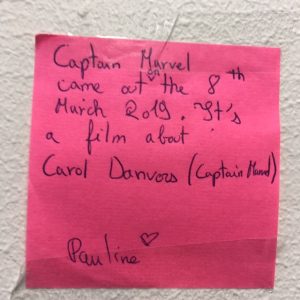 Captain Marvel
came out on the 8th
March 2019. It's
a film about
Carol Danvers (Captain Marvel)
Pauline